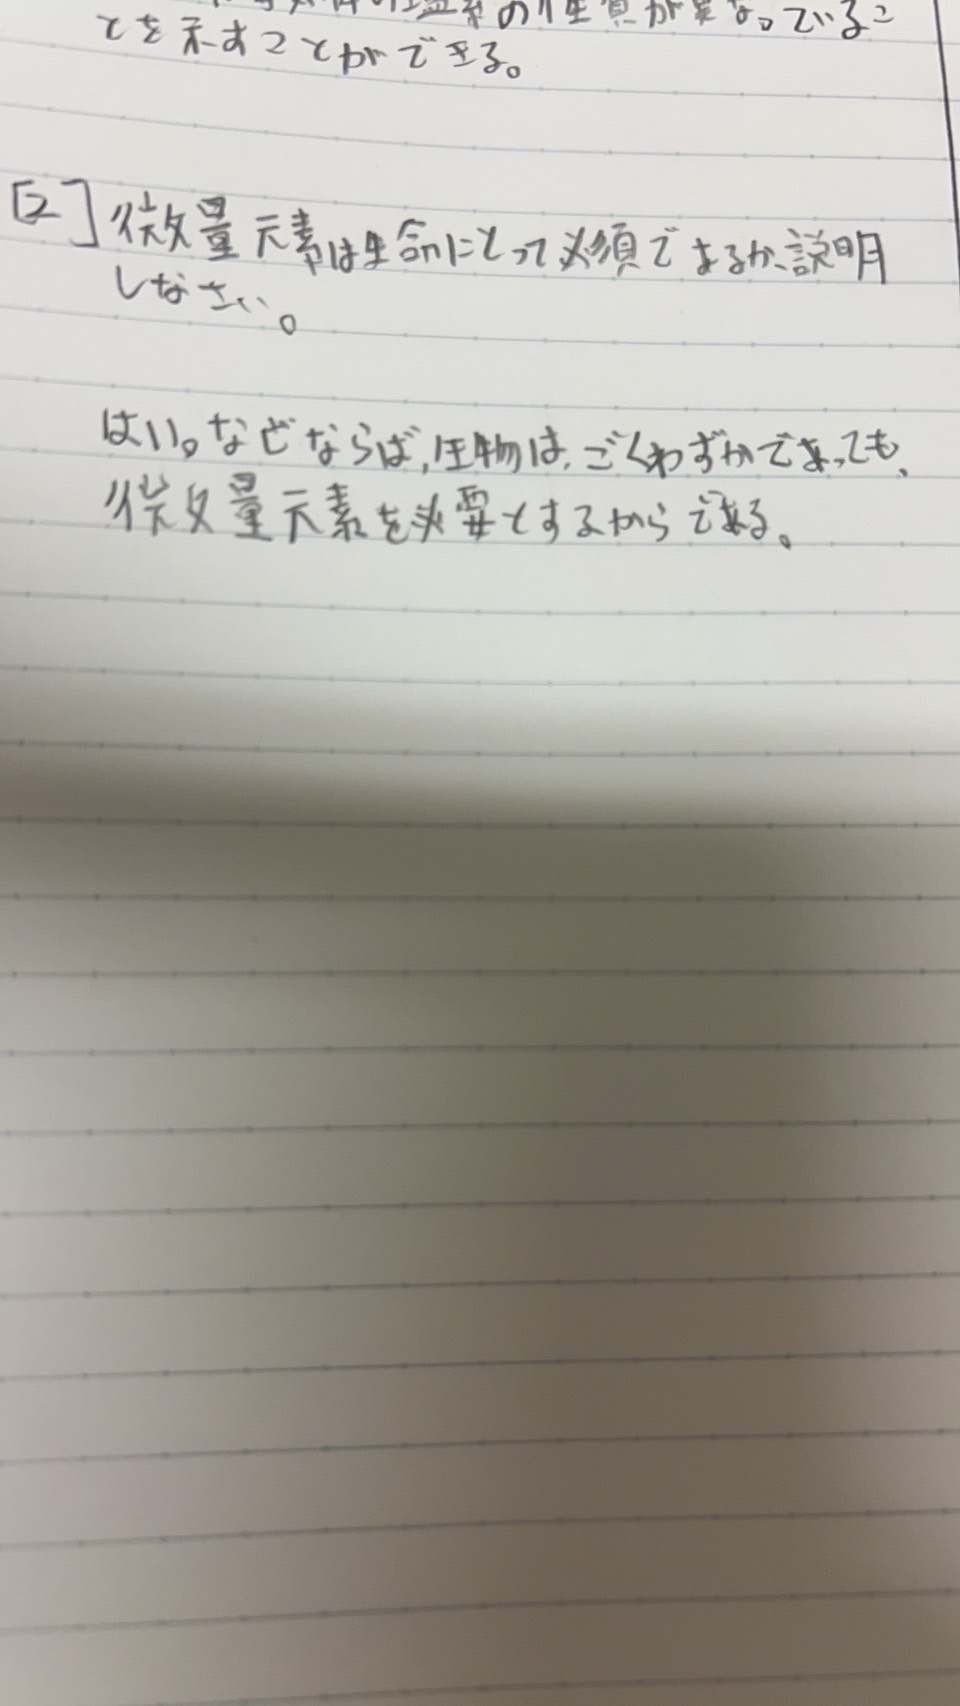 の性質が異なっているこ
とを示すことができる。
[2] 微量元素は生命にとって必須であるか、説明
しなさい。
はい。なぜならば、生物は、ごくわずかであっても、
微量元素を必要とするからである。